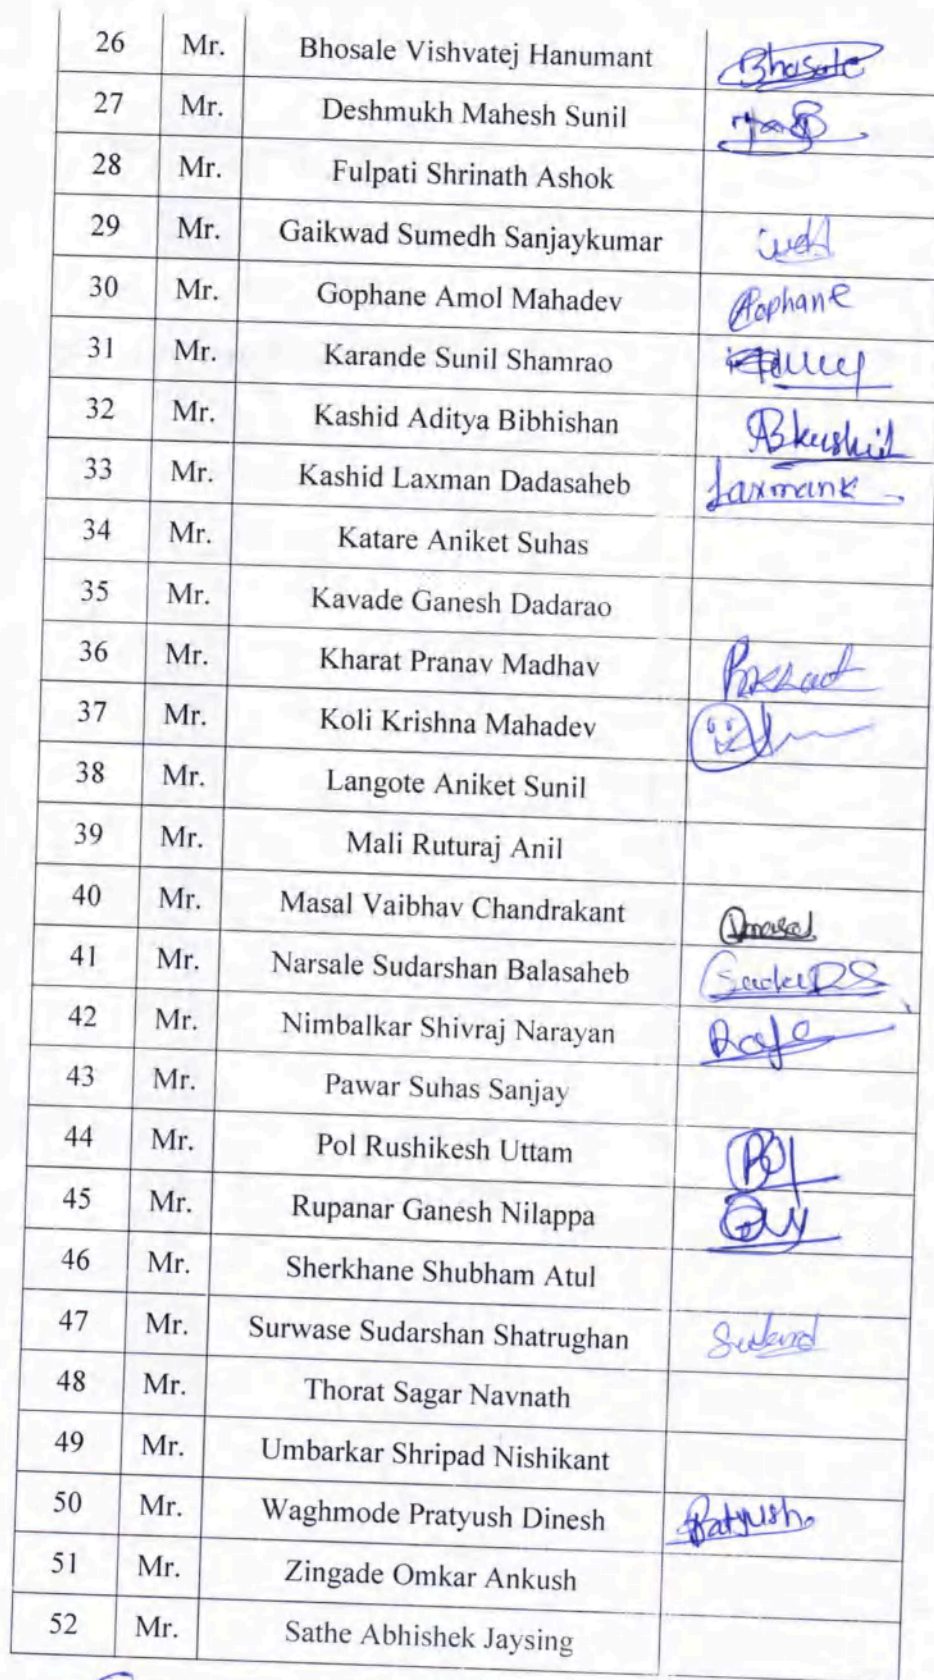 26 Mr. Bhosale Vishvatej Hanumant Bhosale
27 Mr. Deshmukh Mahesh Sunil
28 Mr. Fulpati Shrinath Ashok
29 Mr. Gaikwad Sumedh Sanjaykumar
30 Mr. Gophane Amol Mahadev Gophane
31 Mr. Karande Sunil Shamrao
32 Mr. Kashid Aditya Bibhishan ABkashid
33 Mr. Kashid Laxman Dadasaheb Laxmank
34 Mr. Katare Aniket Suhas
35 Mr. Kavade Ganesh Dadarao
36 Mr. Kharat Pranav Madhav
37 Mr. Koli Krishna Mahadev
38 Mr. Langote Aniket Sunil
39 Mr. Mali Ruturaj Anil
40 Mr. Masal Vaibhav Chandrakant
41 Mr. Narsale Sudarshan Balasaheb
42 Mr. Nimbalkar Shivraj Narayan
43 Mr. Pawar Suhas Sanjay
44 Mr. Pol Rushikesh Uttam Pol
45 Mr. Rupanar Ganesh Nilappa
46 Mr. Sherkhane Shubham Atul
47 Mr. Surwase Sudarshan Shatrughan
48 Mr. Thorat Sagar Navnath
49 Mr. Umbarkar Shripad Nishikant
50 Mr. Waghmode Pratyush Dinesh Pratyush
51 Mr. Zingade Omkar Ankush
52 Mr. Sathe Abhishek Jaysing